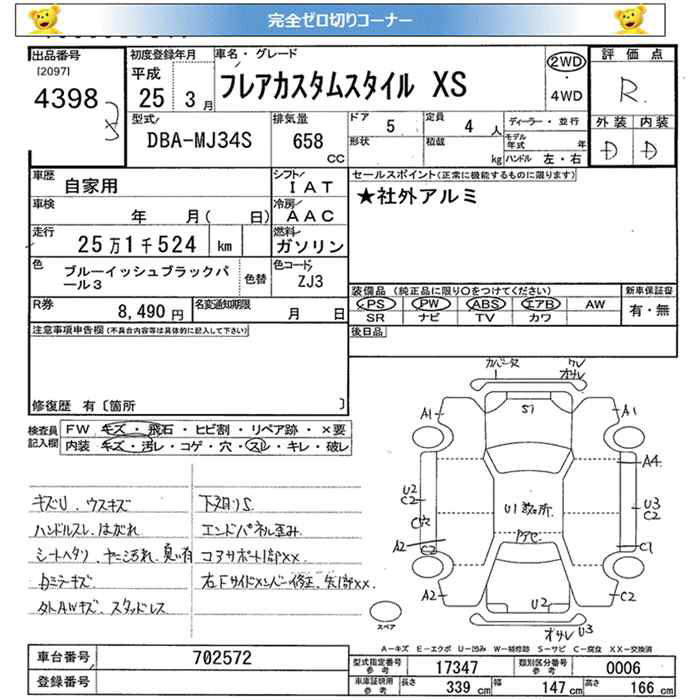 完全ゼロ切りコーナー
出品番号
[2097]
4398
初度登録年月
平成
25 3月
車名・グレード
フレアカスタムスタイル XS
2WD
・
4WD
評価点
R
外装 内装
D D
型式
DBA-MJ34S
排気量
658
CC
ドア 5
定員 4 人
形状
積載 kg
ディーラー・並行
モデル年式 年
ハンドル 左・右
車歴
自家用
シフト
IAT
車検
年 月( 日)
冷房
AAC
走行
25万1千524 km
燃料
ガソリン
色
ブルーイッシュブラックパール3
色替
色コード
ZJ3
R券
8,490円
名変通知期限
月 日
セールスポイント(正常に機能するものに限ります)
★社外アルミ
装備品 (純正品に限り○をつけてください)
PS PW ABS エアB AW
SR ナビ TV カワ
新車保証書
有・無
後日品
注意事項申告欄 (不具合内容等は具体的に記入して下さい)
修復歴 有 [箇所 ]
検査員
記入欄
FW キズ・飛石・ヒビ割・リペア跡・×要
内装 キズ・汚レ・コゲ・穴・スレ・キレ・破レ
キズU ウスキズ
ハンドルスレ、はがれ
シートヘタリ、ヤニ汚れ、臭い有
カミラーキズ
外AWキズ、スタッドレス
下廻りS
エンドパネル歪み
コアサポート1部××
右Fサイドメンバー修正、先1部××
カバー欠
ワレ
オサレ
S1
A1
A1
A4
U2
C2
C穴
A2
C2
U1数ヶ所
U3
C2
C1
A2
C2
U2
オサレ U3
スペア
A−キズ E−エクボ U−凹み W−補修跡 S−サビ C−腐食 XX−交換済
車台番号
702572
登録番号
型式指定番号
参考
17347
類別区分番号
参考
0006
車庫証明用
参考
長さ 339 cm
幅 147 cm
高さ 166 cm